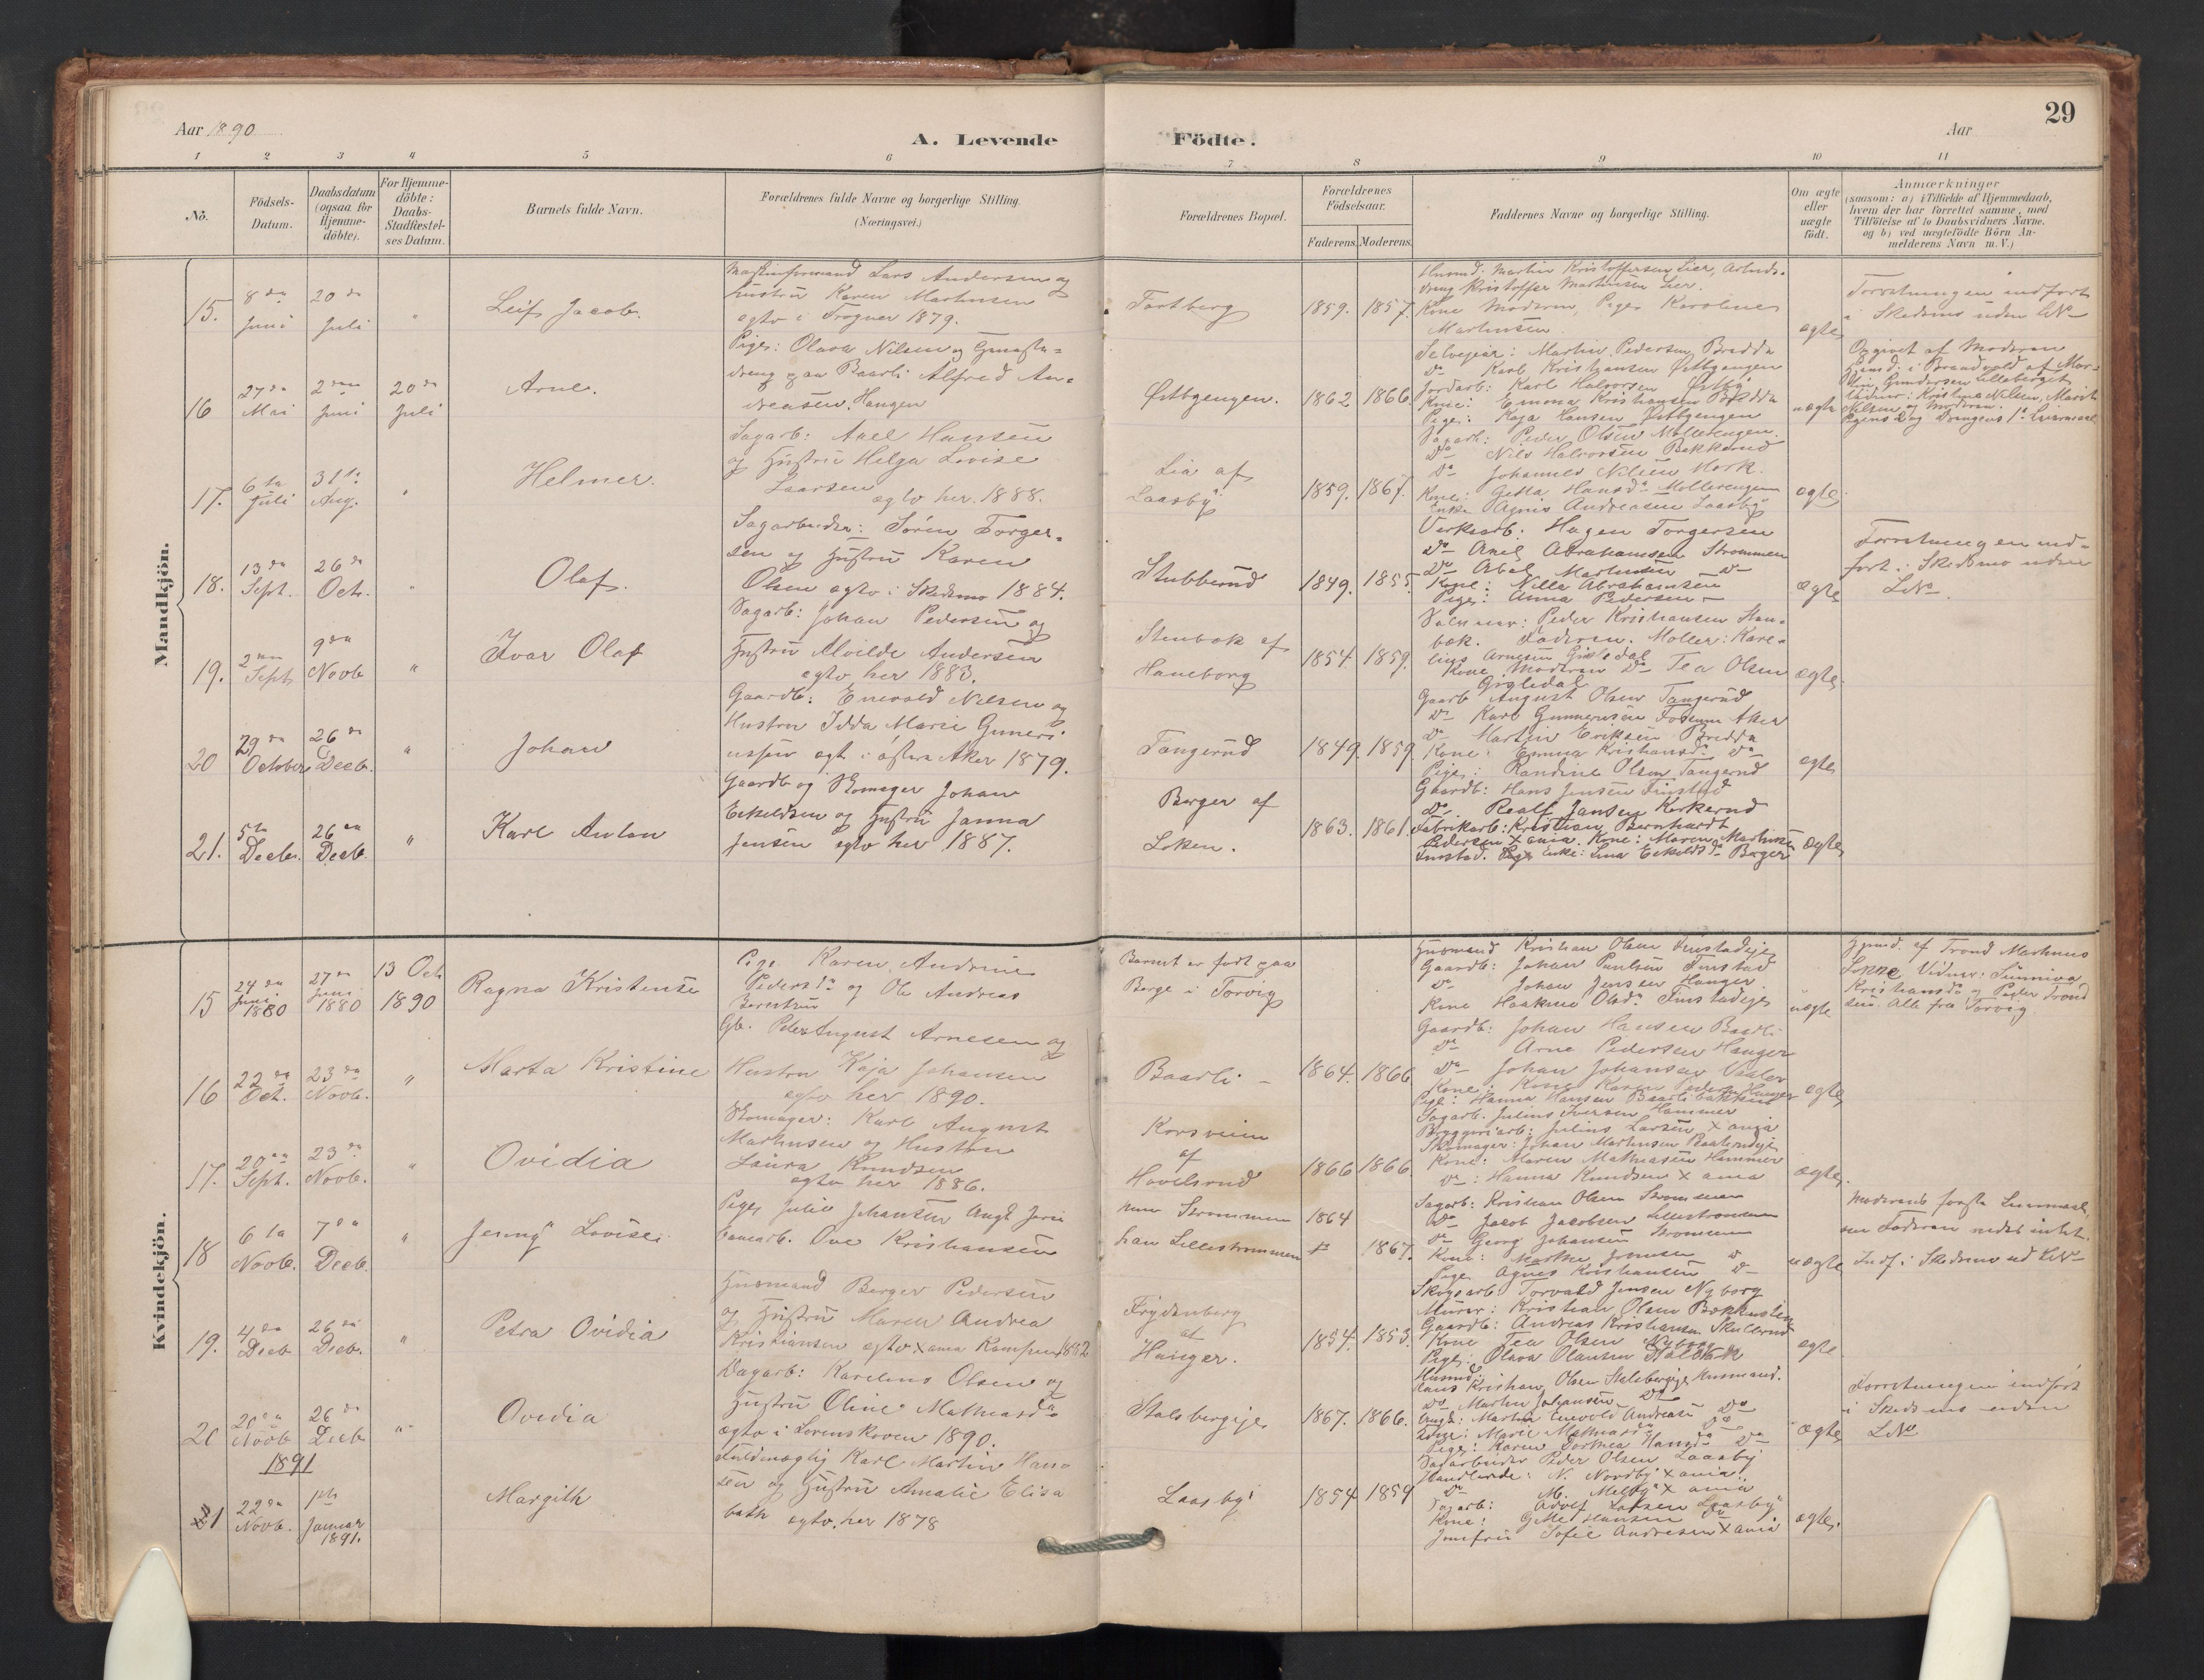 Aar 1890
A. Levende Födte.
Aar
29
1 2 3 4 5 6 7 8 9 10 11
No.
Födsels-Datum.
Daabsdatum (ogsaa for Hjemme-döbte).
For Hjemme-döbte: Daabs-Stadfæstel-ses Datum.
Barnets fulde Navn.
Forældrenes fulde Navne og borgerlige Stilling.
(Næringsvei.)
Forældrenes Bopæl.
Forældrenes Födselsaar.
Faderens. Moderens.
Faddernes Navne og borgerlige Stilling.
Om ægte eller uægte födt.
Anmærkninger
(saasom: a) i Tilfælde af Hjemmedaab,
hvem der har forrettet samme, med
Tilföielse af to Daabsvidners Navne.
og b) ved uægtefödte Börn An-
melderens Navn m. V.)
Mandkjön.
15. 8de Juni 20de Juli " Leif Jacob.
Lars Andersen og
Hustru Karen Martinsen
egtv i Trogner 1879.
Tortberg 1859. 1857.
Martin Kristoffersen Lier, Arbeids-
dreng Kristoffer Martinsen Lier.
Kone Moderen, Pige Karoline
Martinsen
ægte
Forretningen indfört
i Skedsmo uden LNo
16 27de Mai 2den Juni 20de Juli Arne.
Pige: Olava Nilsen og
dreng paa Baarli Alfred An-
dreasen, Haugen
Østbyengen. 1862 1866.
Selveier: Martin Pedersen Bredda
Do Karl Kristiansen Østbyengen
Jordarb: Karl Halvorsen Østby
Kone: Emma Kristiansen Bredda
Pige: Kaja Hansen Østbyengen
uægte
Opgivet af Moderen
Nilsen og Moderen.
17. 6te Juli 31te Aug. " Helmer.
Sagarb: Axel Hansen
og Hustru Helga Lovise
Laarsen egtv her. 1888.
Lia af
Laasby 1859. 1867.
Sagarb: Peder Olsen Mollerengen
Do Nils Halvorsen Bekkerud
Do Johannes Nilsen Mork.
Kone: Getta Hansda Mollerengen
Enke Agnis Andreasen Laasby
ægte
18. 13de Sept. 26de Oct. " Olaf.
Sagarbeider: Sören Torger-
sen og Hustru Karen
Olsen egtv i Skedsmo 1884.
Stubberud 1849. 1855.
Verksarb. Hagen Torgersen
Do Axel Abrahamsen Strommen
Do Abel Martinsen Do
Kone: Nilla Abrahamsen
Pige: Anna Pedersen
ægte
Forretningen ind-
fört i Skedsmo uden
LNo
19. 2den Sept. 9de Novb " Ivar Olaf
Sagarb: Johan Pedersen og
Hustru Alvilde Andersen
egtv her 1883.
Stenbæk af
Haneborg 1854. 1859.
Peder Kristiansen Sten-
bæk. Faderen. Moller: Kare-
lius Arnesen Gisledal
Kone Moderen Do Tea Olsen
Gisledal
ægte.
20 29de October 26de Decb. " Johan
Gaardb: Enevold Nilsen og
Hustru Idda Marie Guneri-
ussen egt i østre Aker 1879.
Tangerud 1849. 1859.
Gaarb August Olsen Tangerud
Do Karl Gunnerusen Fossum Aker
Do Martin Eriksen Bredda
Kone: Emma Kristiansda Do
Pige: Randine Olsen Tangerud
ægte
21. 5te Decbr. 26de Decb. " Karl Anton
Gaardb og Skomager Johan
Eskildsen og Hustru Janna
Jensen egtv her 1887.
Berger af
Loken. 1863. 1861.
Gaardb: Hans Jensen Finstad
Do Realf Jansen Kerkerud
Fabrikarb: Kristian Bernhardt
Pedersen Xania. Kone: Maren Martinsen
Finstad. Enke: Lina Eskildsda Berger
ægte
Kvindekjön.
15 24de Juni 1880 27de Juni 1880 13 Oct 1890 Ragna Kristense
Pige Karen Andrine
Pedersda og Ole Andreas
Berntsen
Barnet er født paa
Berge i Torvig
Husmand Kristian Olsen Finstadeje
Gaardb: Johan Paulsen Finstad
Do Johan Jensen Hauger
Kone Haakine Olsda Finstadeje
uægte
Hjmd. af Trond Martinus
Vidner: Sunniva
Kristiansda og Peder Trond
sen. Alle fra Torvig
16 22de Oct. 23de Novb. " Marta Kristine
Gb. Peter August Arnesen og
Hustru Kaja Johansen
egtv her 1890.
Baarli 1864. 1866
Gaardb: Johan Hansen Baarli
Do Arne Pedersen Hauger
Do Johan Johansen Vaaler
Kone: Kone Karen Pedersen Hauger
Pige: Hanna Hansen Baarlibakken
ægte
17. 20de Sept. 23de Novb. " Ovidia
Skomager: Karl August
Martinsen og Hustru
Laura Knudsen
egtv her 1886.
Korsveien
af
Hovelsrud 1866 1866
Sagarb. Julius Iversen Hammer
Bryggeriarb: Julius Larsen Xania
Skomager: Johan Martinsen
Kone: Maren Mathiasen Hammer
Do: Hanna Knudsen X ania
ægte.
18 6te Novb. 7de Decb. " Jenny Lovise.
Pige Julie Johansen Ungk
Ove Kristiansen
hun Strommen
han Lillestrommen 1864 1867.
Sagarb: Kristian Olsen Strommen
Do Jacob Jacobsen Lillestrommen
Do Georg Johansen Strommen
Kone: Marthe Jonsen Do
Pige Agnes Kristiansen Do
uægte
Moderens forste Leiermaal,
om Faderen vides intet.
Indf. i Skedsmo ud LNo
19. 4de Decb 26de Decb. " Petra Ovidia
Husmand Berger Pedersen
og Hustru Maren Andrea
Kristiansen egtv Xania Kampen 1882
Frydenberg
af
Hauger. 1854. 1853.
Skogsarb Torvald Jensen Nyborg
Murer: Kristian Olsen Bakkesten
Gaardb: Andreas Kristiansen Skullerud
Kone Tea Olsen Nyborg
Pige: Olava Olausen
ægte
20 20de Novb 26de Decb " Ovidia
Dagarb: Karelius Olsen og
Hustru Oline Mathiasda
egtv i Lorenskoven 1890.
Stalsbergeje 1867. 1866.
Husmd.
Hans Kristian Olsen Stalsbergeje Husmand.
Do Martin Johansen Do
Ungk: Martin Enevold Andreasen Do
Kone: Marie Mathiasda Do
Pige: Karen Dorthea Hansda Do
ægte
Forretningen indfört
i Skedsmo uden
LNo
1891
21 22de Novb. 1ste Januar 1891. Margith
Fuldmægtig Karl Martin Han-
sen og Hustru Amalie Elisa
beth egtv. her 1878
Laasby 1854 1859
Sagarbeider Peder Olsen Laasby
Handlende: N. Nordby Xania.
Do M. Melby X ania
Sagarb: Adolf Larsen Laasby
Kone: Gitte Hansen Do
Jomfru Sofie Andresen X ania
ægte.